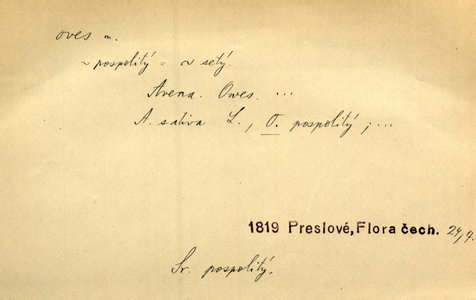 oves m.
~ pospolitý = ~ setý.
Avena. Owes. ...
A. sativa L., O. pospolitý; ...
1819 Preslové, Flora čech. 24,4.
Sr. pospolitý.